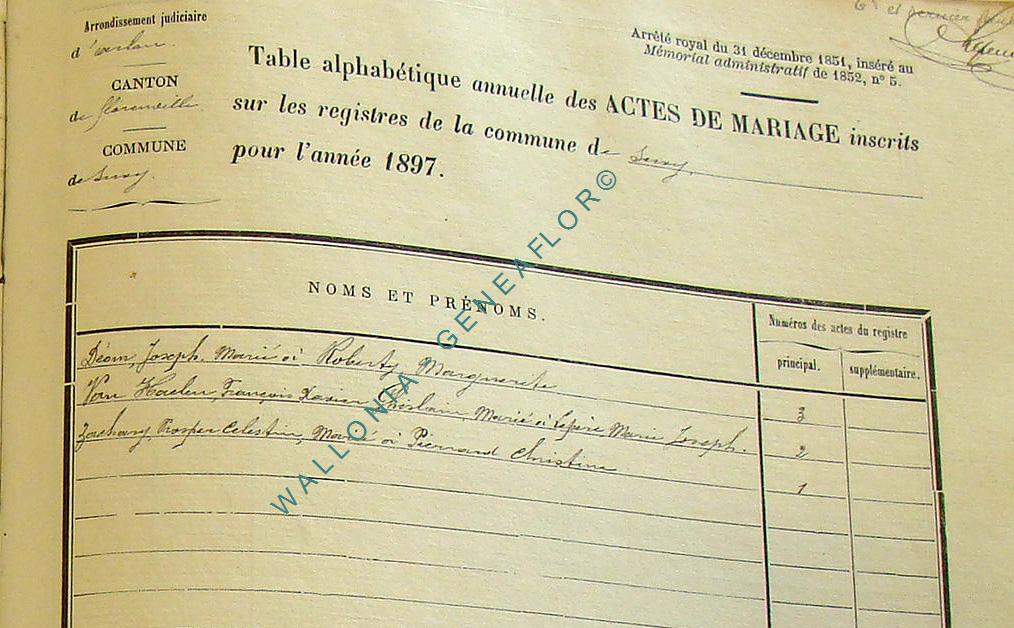 Arrondissement judiciaire
d'arlon.
CANTON
de florenville
COMMUNE
de Suxy.
Arrêté royal du 31 décembre 1851, inséré au
Mémorial administratif de 1852, n° 5.
Table alphabétique annuelle des ACTES DE MARIAGE inscrits
sur les registres de la commune de Suxy.
pour l'année 1897.
NOMS ET PRÉNOMS.
Numéros des actes du registre
principal. supplémentaire.
Déom, Joseph. Marié à Roberty Marguerite 3
Van Haelen François Xavier Ghislain, Marié à Lepère, Marie Joseph. 2
Zachary, Prosper Celestin, Marié à Pierrard Christine 1
WALLONIA GENEAFLOR©